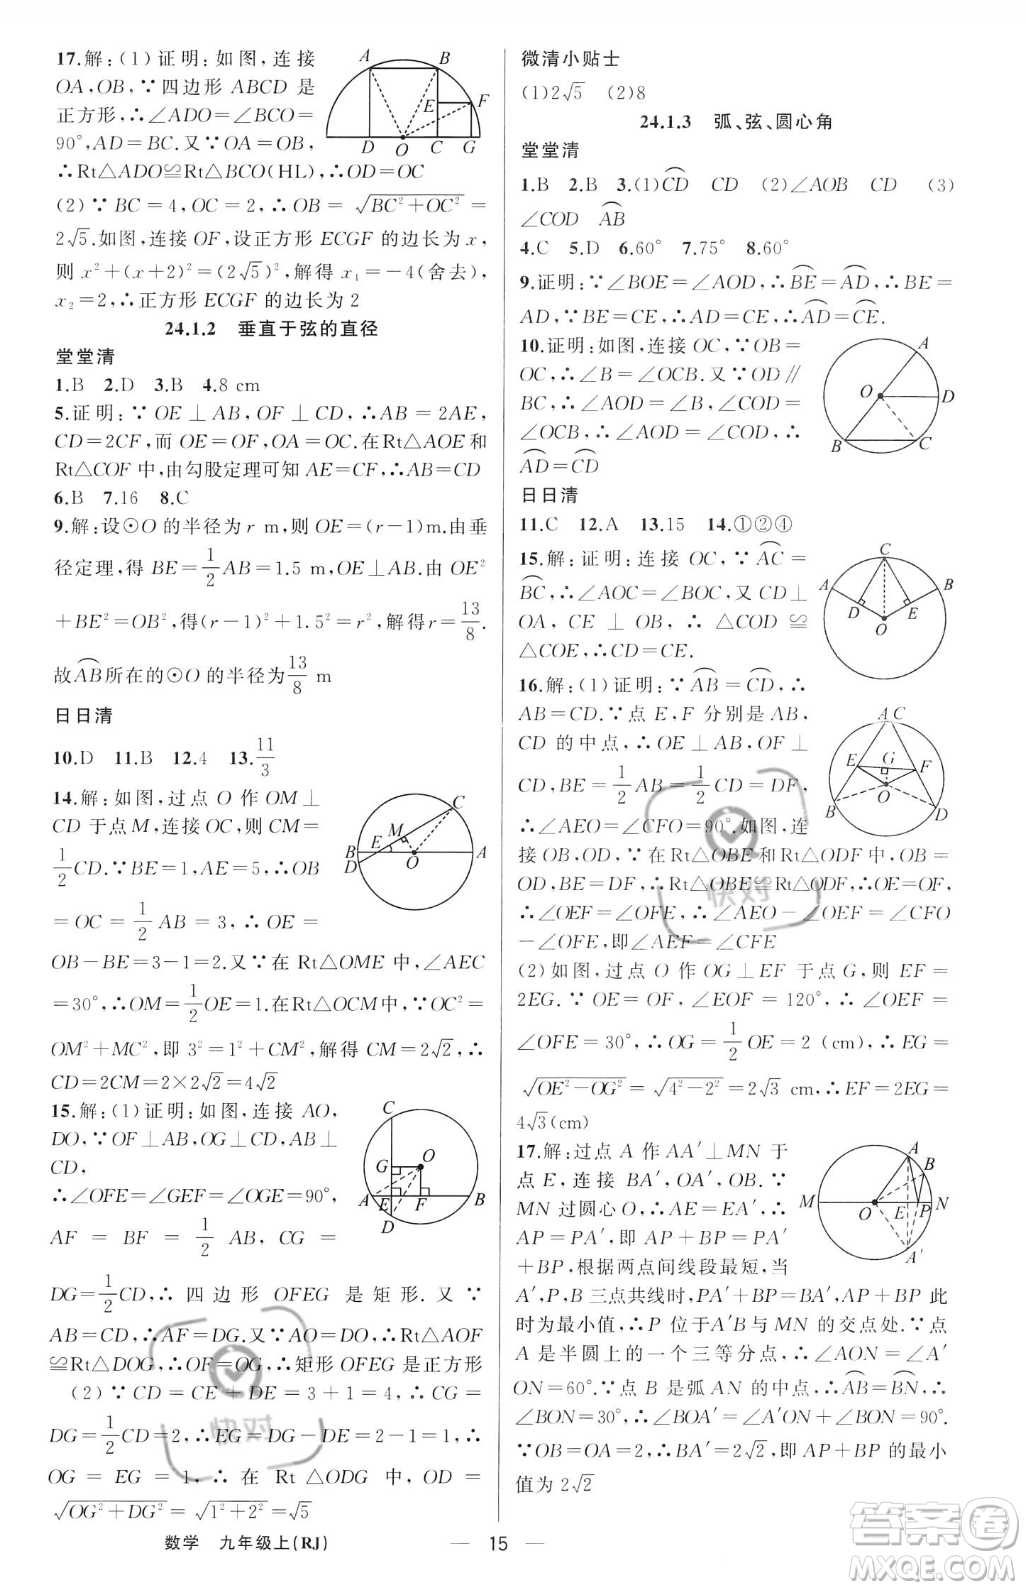 17.解:(1)证明:如图,连接
OA,OB,∵四边形 ABCD 是
正方形,∴∠ADO=∠BCO=
90°,AD=BC.又∵OA=OB,
∴Rt△ADO≌Rt△BCO(HL),∴OD=OC
(2)∵BC=4,OC=2,∴OB=√(BC²+OC²)=
2√5.如图,连接 OF,设正方形 ECGF 的边长为 x,
则 x²+(x+2)²=(2√5)²,解得 x₁=-4(舍去),
x₂=2,∴正方形 ECGF 的边长为 2
24.1.2 垂直于弦的直径
堂堂清
1.B 2.D 3.B 4.8 cm
5.证明:∵OE⊥AB,OF⊥CD,∴AB=2AE,
CD=2CF,而 OE=OF,OA=OC.在 Rt△AOE 和
Rt△COF 中,由勾股定理可知 AE=CF,∴AB=CD
6.B 7.16 8.C
9.解:设⊙O 的半径为 r m,则 OE=(r-1)m.由垂
径定理,得 BE=1/2 AB=1.5 m,OE⊥AB.由 OE²
+BE²=OB²,得(r-1)²+1.5²=r²,解得 r=13/8.
故⌒AB所在的⊙O 的半径为 13/8 m
日日清
10.D 11.B 12.4 13.11/3
14.解:如图,过点 O 作 OM⊥
CD 于点 M,连接 OC,则 CM=
1/2 CD.∵BE=1,AE=5,∴OB
=OC=1/2 AB=3,∴OE=
OB-BE=3-1=2.又∵在 Rt△OME 中,∠AEC
=30°,∴OM=1/2 OE=1.在Rt△OCM中,∵OC²=
OM²+MC²,即 3²=1²+CM²,解得 CM=2√2,∴
CD=2CM=2×2√2=4√2
15.解:(1)证明:如图,连接 AO,
DO,∵OF⊥AB,OG⊥CD,AB⊥
CD,
∴∠OFE=∠GEF=∠OGE=90°,
AF=BF=1/2 AB,CG=
DG=1/2 CD,∴四边形 OFEG 是矩形.又∵
AB=CD,∴AF=DG.又∵AO=DO,∴Rt△AOF
≌Rt△DOG,∴OF=OG,∴矩形 OFEG 是正方形
(2)∵CD=CE+DE=3+1=4,∴CG=
DG=1/2 CD=2,∴EG=DG-DE=2-1=1,∴
OG=EG=1,∴在 Rt△ODG 中,OD=
√(OG²+DG²)=√(1²+2²)=√5
微清小贴士
(1)2√5 (2)8
24.1.3 弧、弦、圆心角
堂堂清
1.B 2.B 3.(1)⌒CD CD (2)∠AOB CD (3)
∠COD ⌒AB
4.C 5.D 6.60° 7.75° 8.60°
9.证明:∵∠BOE=∠AOD,∴⌒BE=⌒AD,∴BE=
AD,∵BE=CE,∴AD=CE,∴⌒AD=⌒CE.
10.证明:如图,连接 OC,∵OB=
OC,∴∠B=∠OCB.又∵OD∥
BC,∴∠AOD=∠B,∠COD=
∠OCB,∴∠AOD=∠COD,∴
⌒AD=⌒CD
日日清
11.C 12.A 13.15 14.①②④
15.解:证明:连接 OC,∵⌒AC=
⌒BC,∴∠AOC=∠BOC,又∵CD⊥
OA,CE⊥OB,∴△COD≌
△COE,∴CD=CE.
16.解:(1)证明:∵⌒AB=⌒CD,∴
AB=CD.∵点 E,F 分别是 AB,
CD 的中点,∴OE⊥AB,OF⊥
CD,BE=1/2 AB=1/2 CD=DF,
∴∠AEO=∠CFO=90°.如图,连
接 OB,OD,∵在 Rt△OBE 和 Rt△ODF 中,OB=
OD,BE=DF,∴Rt△OBE≌Rt△ODF,∴OE=OF,
∴∠OEF=∠OFE,∴∠AEO-∠OEF=∠CFO
-∠OFE,即∠AEF=∠CFE
(2)如图,过点 O 作 OG⊥EF 于点 G,则 EF=
2EG.∵OE=OF,∠EOF=120°,∴∠OEF=
∠OFE=30°,∴OG=1/2 OE=2(cm),∴EG=
√(OE²-OG²)=√(4²-2²)=2√3 cm,∴EF=2EG=
4√3(cm)
17.解:过点 A 作 AA′⊥MN 于
点 E,连接 BA′,OA′,OB.∵
MN 过圆心 O,∴AE=EA′,∴
AP=PA′,∴AP+BP=PA′
+BP,根据两点间线段最短,当
A′,P,B 三点共线时,PA′+BP=BA′,此
时为最小值,∴P 位于 A′B 与 MN 的交点处.∵点
A 是半圆上的一个三等分点,∴∠AON=∠A′
ON=60°.∵点 B 是弧 AN 的中点,∴⌒AB=⌒BN,∴
∠BON=30°,∴∠A′OB=∠A′ON+∠BON=90°.
∵OB=OA=2,∴BA′=2√2,即 AP+BP 的最小
值为 2√2
数学 九年级上(RJ)
15
快对
快对
答案圈
MXQE.COM